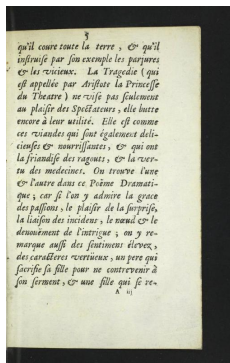 3
qu'il coure toute la terre, & qu'il
instruise par son exemple les parjures
& les vicieux. La Tragedie (qui
est appellée par Aristote la Princesse
du Theatre) ne vise pas seulement
au plaisir des Spectateurs, elle butte
encore à leur utilité. Elle est comme
ces viandes qui sont également deli-
cieuses & nourrissantes, & qui ont
la friandise des ragouts, & la ver-
tu des medecines. On trouve l'une
& l'autre dans ce Poëme Dramati-
que; car si l'on y admire la grace
des passions, le plaisir de la surprise,
la liaison des incidens, le nœud & le
denouëment de l'intrigue; on y re-
marque aussi des sentimens élevez,
des caracteres vertüeux, un pere qui
sacrifie sa fille pour ne contrevenir à
son serment, & une fille qui se re-
A iij